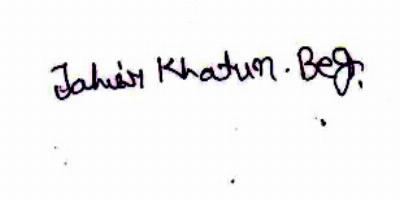 Jahir Khatun. Beg.